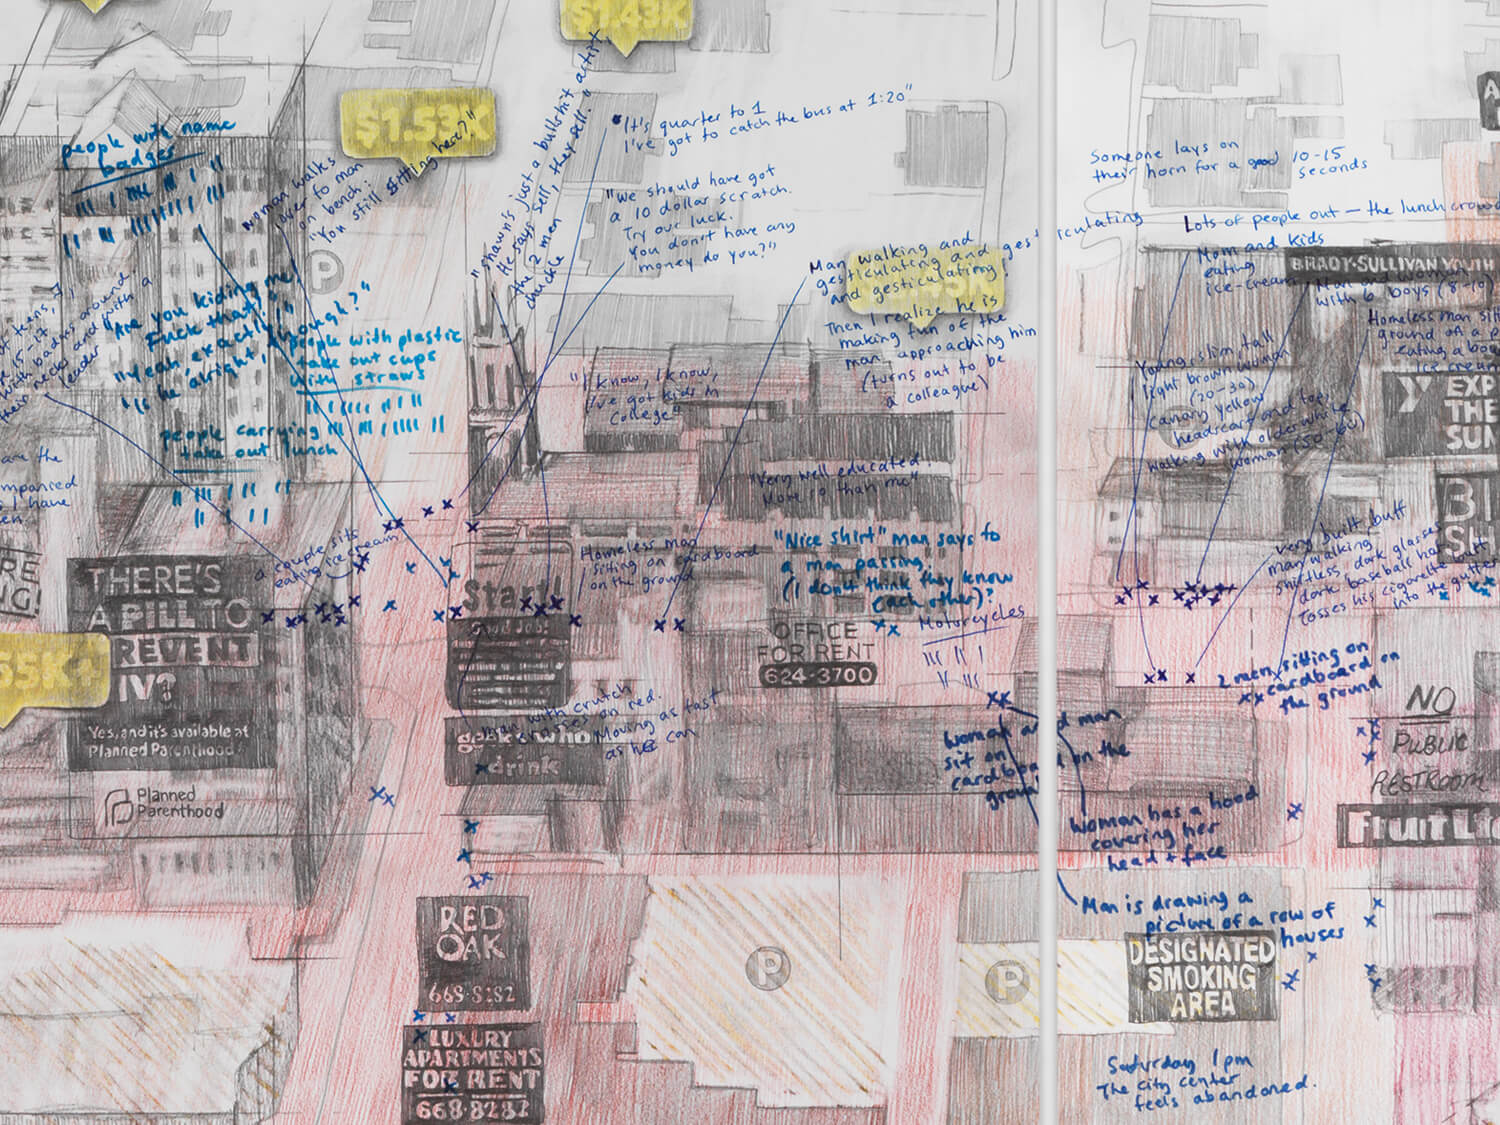 $1.43K
$1.53K
people with name
badges
woman walks
over to man
on bench.
"You
still sitting here?"
"Shawn's just a bullshit artist,
He says sell, they sell."
the 2 men
chuckle
"It's quarter to 1
I've got to catch the bus at 1:20"
"We should have got
a 10 dollar scratch.
Try our luck.
You don't have any
money do you?"
Man walking and
gesticulating and gesticulating
and gesticulating!
Then I realize he is
making fun of the
man approaching him
(turns out to be
a colleague)
Someone lays on
their horn for a good 10-15
seconds
Lots of people out — the lunch crowd
Mom and kids
eating
ice-cream
BRADY-SULLIVAN YOUTH
Man and woman
with 6 boys (8-10)
Homeless man
ground on a
eating a
ice cream
Young, slim, tall
light brown woman
(20-30)
canary yellow
head scarf and top,
walking with older white
woman (50-60)
EXP
THE
SUN
with badges around
their necks and with a
leader
"Are you kiding me
Fuck that,"
"Yeah, exactly"
"Is he alright, though?"
people with plastic
take out cups
with straws
people carrying
take out lunch
are the
I have
"I know, I know,
I've got kids in
college"
"Very well educated.
More so than me"
"Nice shirt" man says to
a man passing.
(I don't think they know
each other)?
a couple sits
eating ice cream
Homeless man
sitting on cardboard
on the ground
Motorcycles
very built, buff
man walking
shirtless, dark glasses
dark baseball hat
Tosses his cigarette butt
into the gutter
THERE'S
A PILL TO
PREVENT
HIV?
Yes, and it's available at
Planned Parenthood!
Planned
Parenthood
55K+
Start
Good Job!
OFFICE
FOR RENT
624-3700
2 men sitting on
cardboard on
the ground
Man with crutch
crosses on red.
Moving as fast
as he can
drink
Woman and man
sit on
cardboard on the
ground
NO
PUBLIC
RESTROOM
Woman has a hood
covering her
head + face
Man is drawing a
picture of a row of
houses
RED
OAK
668-8282
LUXURY
APARTMENTS
FOR RENT
668-8282
P
P
P
DESIGNATED
SMOKING
AREA
Saturday 1pm
The city center
feels abandoned.